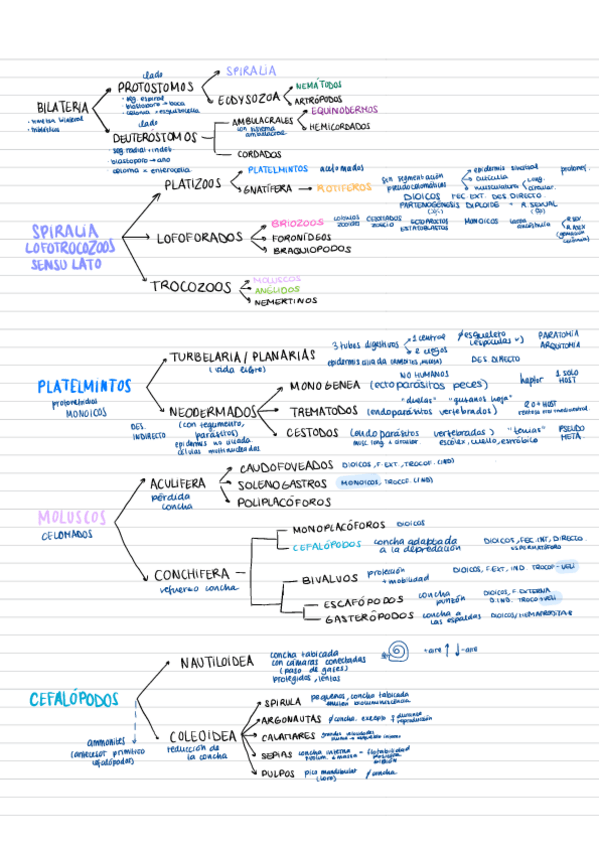 clado
PROTÓSTOMOS
· seg. espiral
· blastoporo → boca
· celoma → esquizocelia
SPIRALIA
ECDYSOZOA
NEMÁTODOS
ARTRÓPODOS
BILATERIA
· simetria bilateral
clado
DEUTERÓSTOMOS
· seg radial + indet
· blastoporo → ano
· celoma → enterocelia
AMBULACRALES
con sistema
ambulacral
EQUINODERMOS
HEMICORDADOS
CORDADOS
PLATIZOOS
PLATELMINTOS acelomados
GNATÍFERA → ROTIFEROS
sin segmentación
pseudocelomáticos
epidermis sincitial
cutícula
musculatura
long.
circular.
DIOICOS FEC EXT. DES DIRECTO
PARTENOGÉNESIS DIPLOIDE + R SEXUAL
SPIRALIA
LOFOTROCOZOOS
SENSU LATO
LOFOFORADOS
BRIOZOOS
colonias
zooides
CELOMADOS
ECTOPROCTOS
ESTATOBLASTOS
MONOICOS
larva
R SEX
R ASEX
FORONÍDEOS
BRAQUIOPODOS
TROCOZOOS
MOLUSCOS
ANÉLIDOS
NEMERTINOS
PLATELMINTOS
protonefridios
MONOICOS
TURBELARIA / PLANARIAS
(vida libre)
3 tubos digestivos
1 central
2 ciegos
PARATOMIA
ARQUITOMIA
DES DIRECTO
NEODERMADOS
(con tegumento,
parásitos)
epidermis no ciliada
células multinucleadas
DES.
INDIRECTO
NO HUMANOS
MONOGENEA (ectoparásitos peces)
haptor
1 SOLO
HOST
"duelas" "gusanos hoja"
TREMATODOS (endoparásitos vertebrados)
2 o + HOST
CESTODOS (endo parásitos vertebrados) "tenias"
musc long + circular. escólex, cuello, estróbilo
PSEUDO
META.
MOLUSCOS
CELOMADOS
ACULIFERA
pérdida
concha
CAUDOFOVEADOS DIOICOS, F. EXT, TROCOF. (IND)
SOLENOGASTROS MONOICOS, TROCOF. (IND)
POLIPLACÓFOROS
CONCHIFERA
refuerzo concha
MONOPLACÓFOROS DIOICOS
CEFALÓPODOS concha adaptada
a la depredación
DIOICOS, FEC.INT, DIRECTO
ESPERMATÓFORO
BIVALVOS protección
+ movilidad
DIOICOS, F.EXT, IND. TROCOF-VELI
ESCAFÓPODOS concha
punzón
DIOICOS, F. EXTERNA
D.IND. TROCO-VELI
GASTERÓPODOS concha a
las espaldas
DIOICOS/HERMAFRODITAS
CEFALÓPODOS
ammonites
(antecesor primitivo
cefalópodos)
NAUTILOIDEA
concha tabicada
con cámaras conectadas
(paso de gases)
protegidos, lentos
+aire ↑ ↓ -aire
COLEOIDEA
reducción de
la concha
SPIRULA pequeños, concha tabicada
emiten bioluminiscencia
ARGONAUTAS
CALAMARES
SEPIAS concha interna
flotabilidad
PULPOS pico mandibular
(loro)
≠ concha